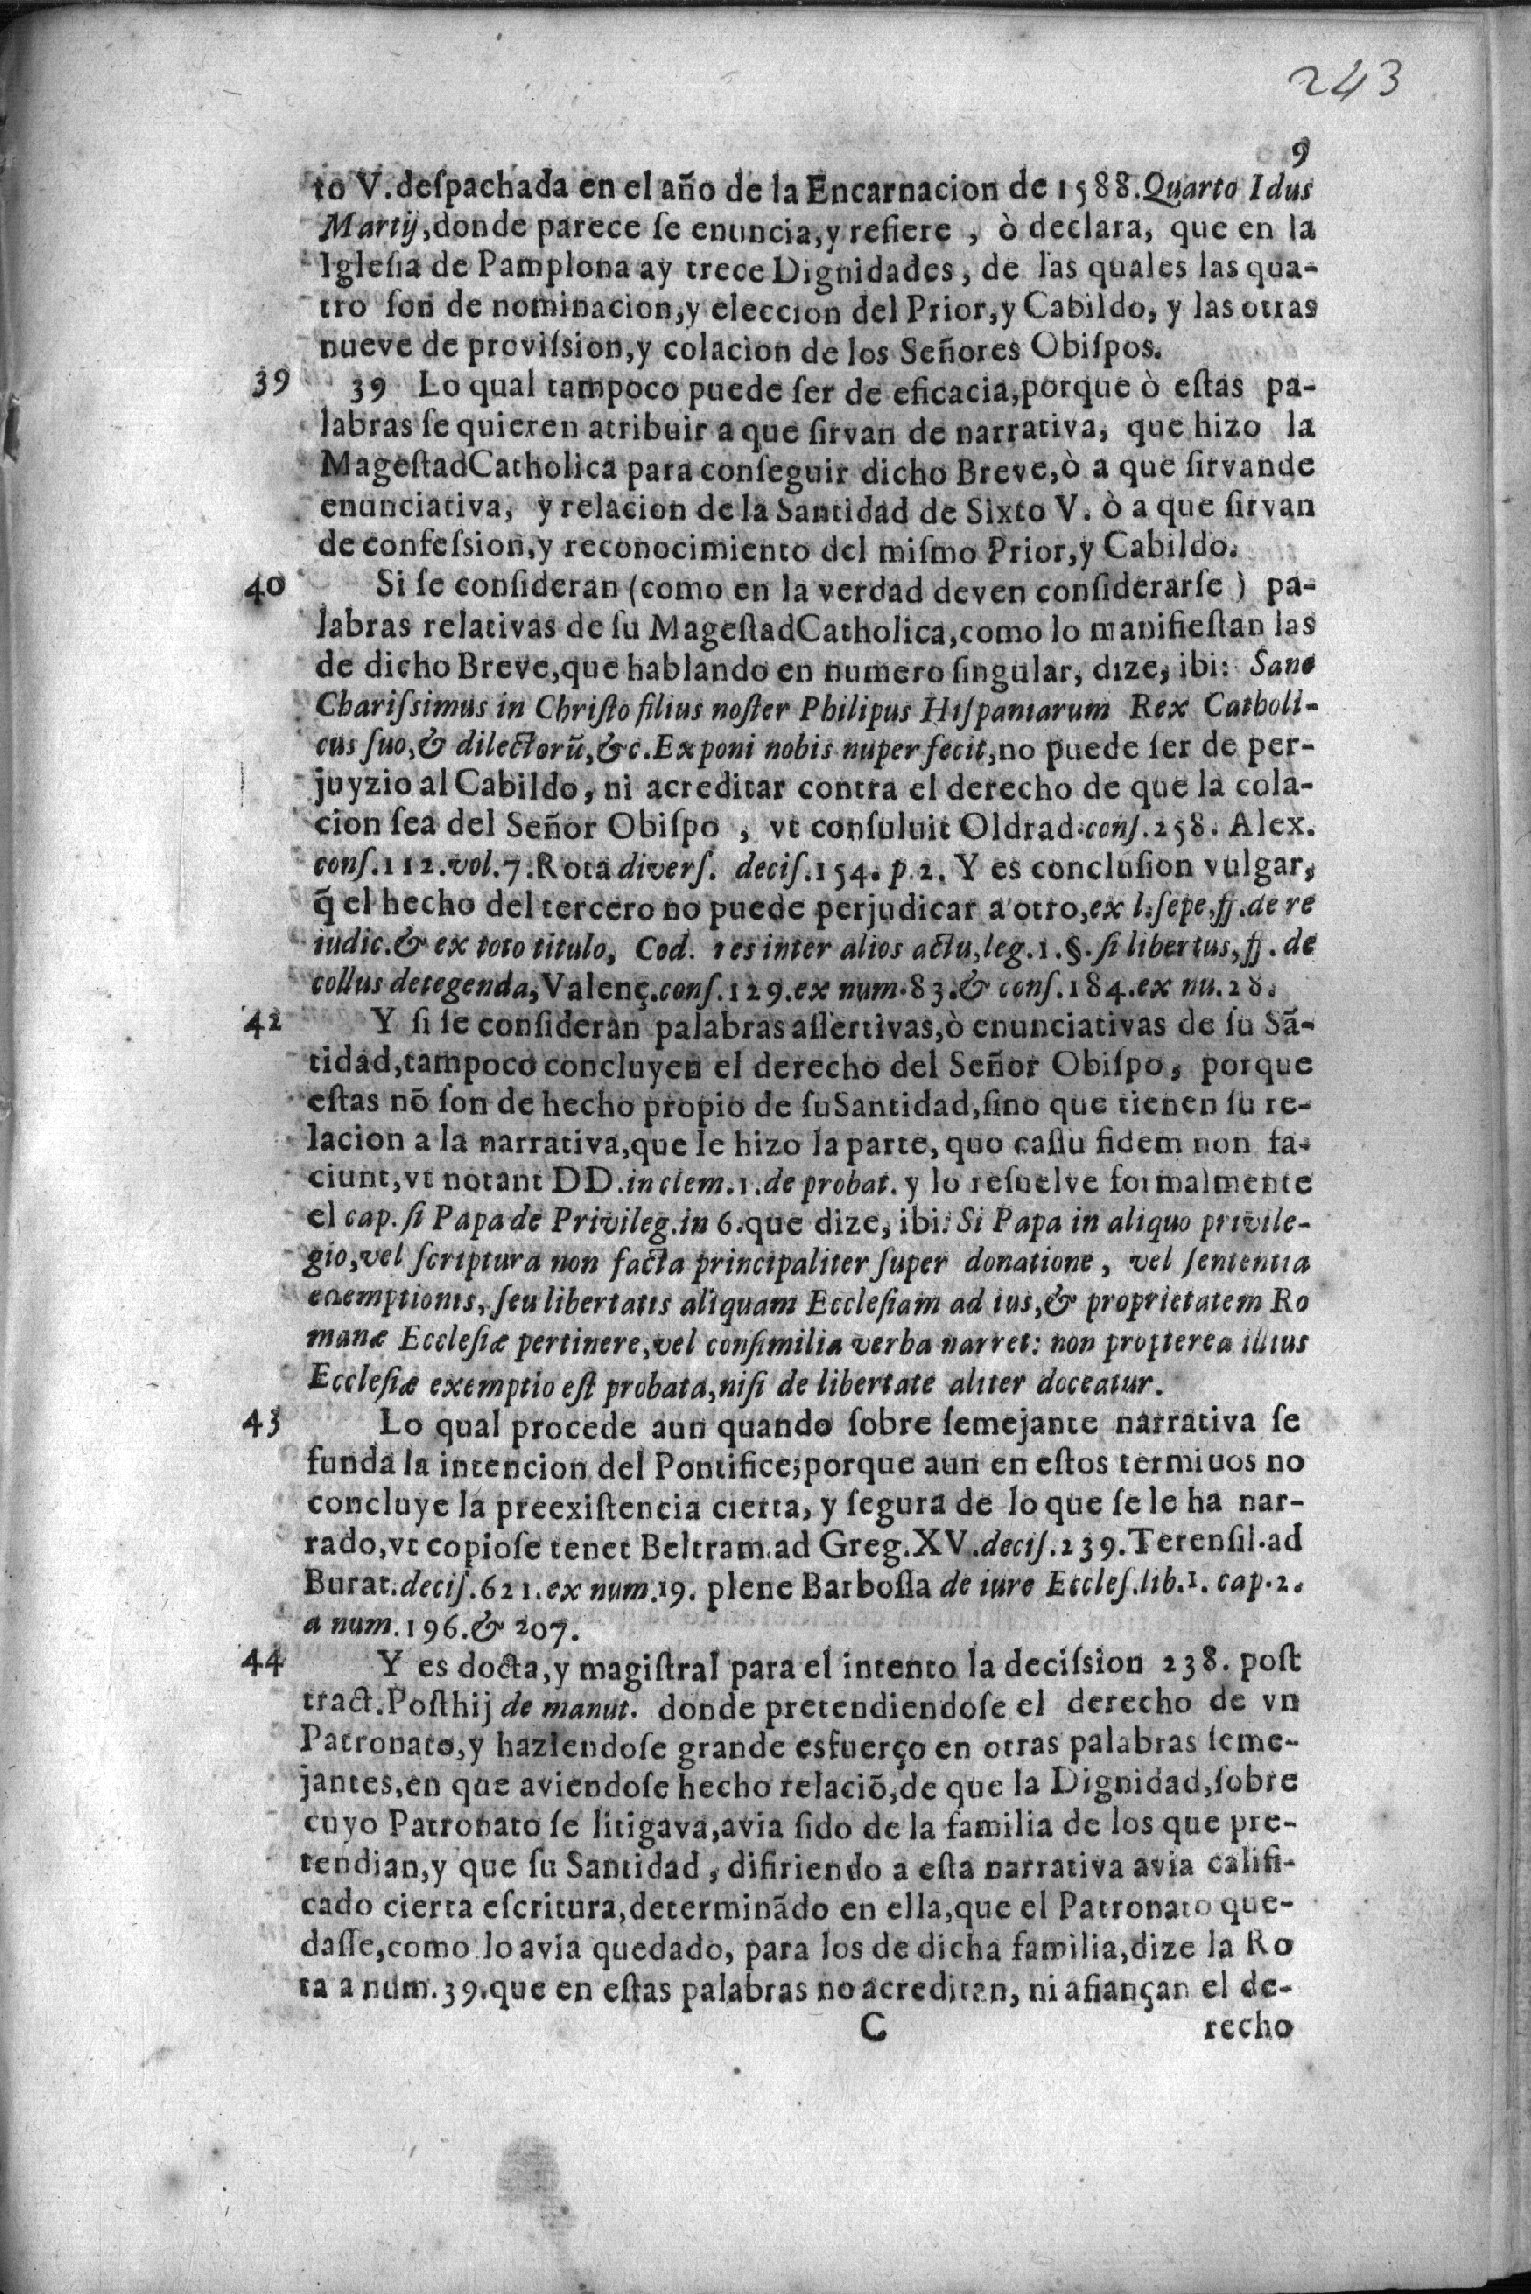 243
9
to V. deſpachada en el año de la Encarnacion de 1588. Quarto Idus
Martij, donde parece ſe enuncia, y refiere, ò declara, que en la
Igleſia de Pamplona ay trece Dignidades, de las quales las qua-
tro ſon de nominacion, y eleccion del Prior, y Cabildo, y las otras
nueve de proviſsion, y colacion de los Señores Obiſpos.
39 39 Lo qual tampoco puede ſer de eficacia, porque ò eſtas pa-
labras ſe quieren atribuir a que ſirvan de narrativa, que hizo la
Mageſtad Catholica para conſeguir dicho Breve, ò a que ſirvan de
enunciativa, y relacion de la Santidad de Sixto V. ò a que ſirvan
de confeſsion, y reconocimiento del miſmo Prior, y Cabildo.
40 Si ſe conſideran (como en la verdad deven conſiderarſe) pa-
labras relativas de ſu Mageſtad Catholica, como lo manifieſtan las
de dicho Breve, que hablando en numero ſingular, dize, ibi: Sane
Chariſsimus in Chriſto filius noſter Philipus Hiſpaniarum Rex Catholi-
cus ſuo, & dilectorũ, &c. Exponi nobis nuper fecit, no puede ſer de per-
juyzio al Cabildo, ni acreditar contra el derecho de que la cola-
cion ſea del Señor Obiſpo, vt conſuluit Oldrad. conſ. 258. Alex.
conſ. 112. vol. 7. Rota diverſ. deciſ. 154. p. 2. Y es concluſion vulgar,
q̃ el hecho del tercero no puede perjudicar a otro, ex l. ſepe, ff. de re
iudic. & ex toto titulo, Cod. res inter alios actu, leg. 1. §. ſi libertus, ff. de
collus detegenda, Valenç. conſ. 129. ex num. 83. & conſ. 184. ex nu. 28.
42 Y ſi ſe conſideran palabras aſſertivas, ò enunciativas de ſu Sã-
tidad, tampoco concluyen el derecho del Señor Obiſpo, porque
eſtas nõ ſon de hecho propio de ſu Santidad, ſino que tienen ſu re-
lacion a la narrativa, que le hizo la parte, quo caſſu fidem non fa-
ciunt, vt notant DD. in clem. 1. de probat. y lo reſuelve formalmente
el cap. ſi Papa de Privileg. in 6. que dize, ibi: Si Papa in aliquo privile-
gio, vel ſcriptura non facta principaliter ſuper donatione, vel ſententia
exemptionis, ſeu libertatis aliquam Eccleſiam ad ius, & proprietatem Ro
manæ Eccleſiæ pertinere, vel conſimilia verba narret: non propterea illius
Eccleſiæ exemptio eſt probata, niſi de libertate aliter doceatur.
43 Lo qual procede aun quando ſobre ſemejante narrativa ſe
funda la intencion del Pontifice; porque aun en eſtos termiuos no
concluye la preexiſtencia cierta, y ſegura de lo que ſe le ha nar-
rado, vt copioſe tenet Beltram. ad Greg. XV. deciſ. 239. Terenſil. ad
Burat. deciſ. 621. ex num. 19. plene Barboſſa de iure Eccleſ. lib. 1. cap. 2.
a num. 196. & 207.
44 Y es docta, y magiſtral para el intento la deciſsion 238. poſt
tract. Poſthij de manut. donde pretendiendoſe el derecho de vn
Patronato, y haziendoſe grande esfuerço en otras palabras ſeme-
jantes, en que aviendoſe hecho relaciõ, de que la Dignidad, ſobre
cuyo Patronato ſe litigava, avia ſido de la familia de los que pre-
tendian, y que ſu Santidad, difiriendo a eſta narrativa avia califi-
cado cierta eſcritura, determinãdo en ella, que el Patronato que-
daſſe, como lo avia quedado, para los de dicha familia, dize la Ro
ta a num. 39. que en eſtas palabras no acreditan, ni afiançan el de-
C recho